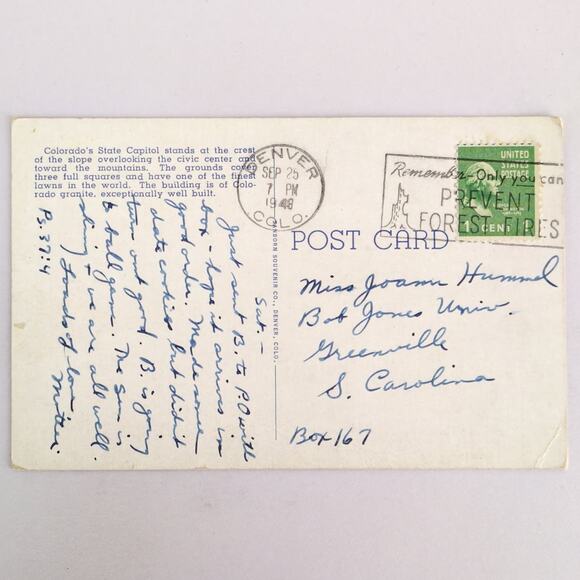 Colorado's State Capitol stands at the crest
of the slope overlooking the civic center and
toward the mountains. The grounds cover
three full squares and have one of the finest
lawns in the world. The building is of Colo-
rado granite, exceptionally well built.
DENVER
SEP 25
7 PM
1948
COLO.
Remember - Only you can
PREVENT
FOREST FIRES
UNITED
STATES
POSTAGE
1 CENT
POST CARD
SANBORN SOUVENIR CO., DENVER, COLO.
Miss Joann Hummel
Bob Jones Univ.
Greenville
S. Carolina
Box 167
Sat -
Just sent B. to P.O with
box - hope it arrives in
good order. Made some
date cookies but didn't
turn out good. B. is going
to ball game. The sun is
shining & we are all well.
Loads of love
Mother.
Ps. 37:4